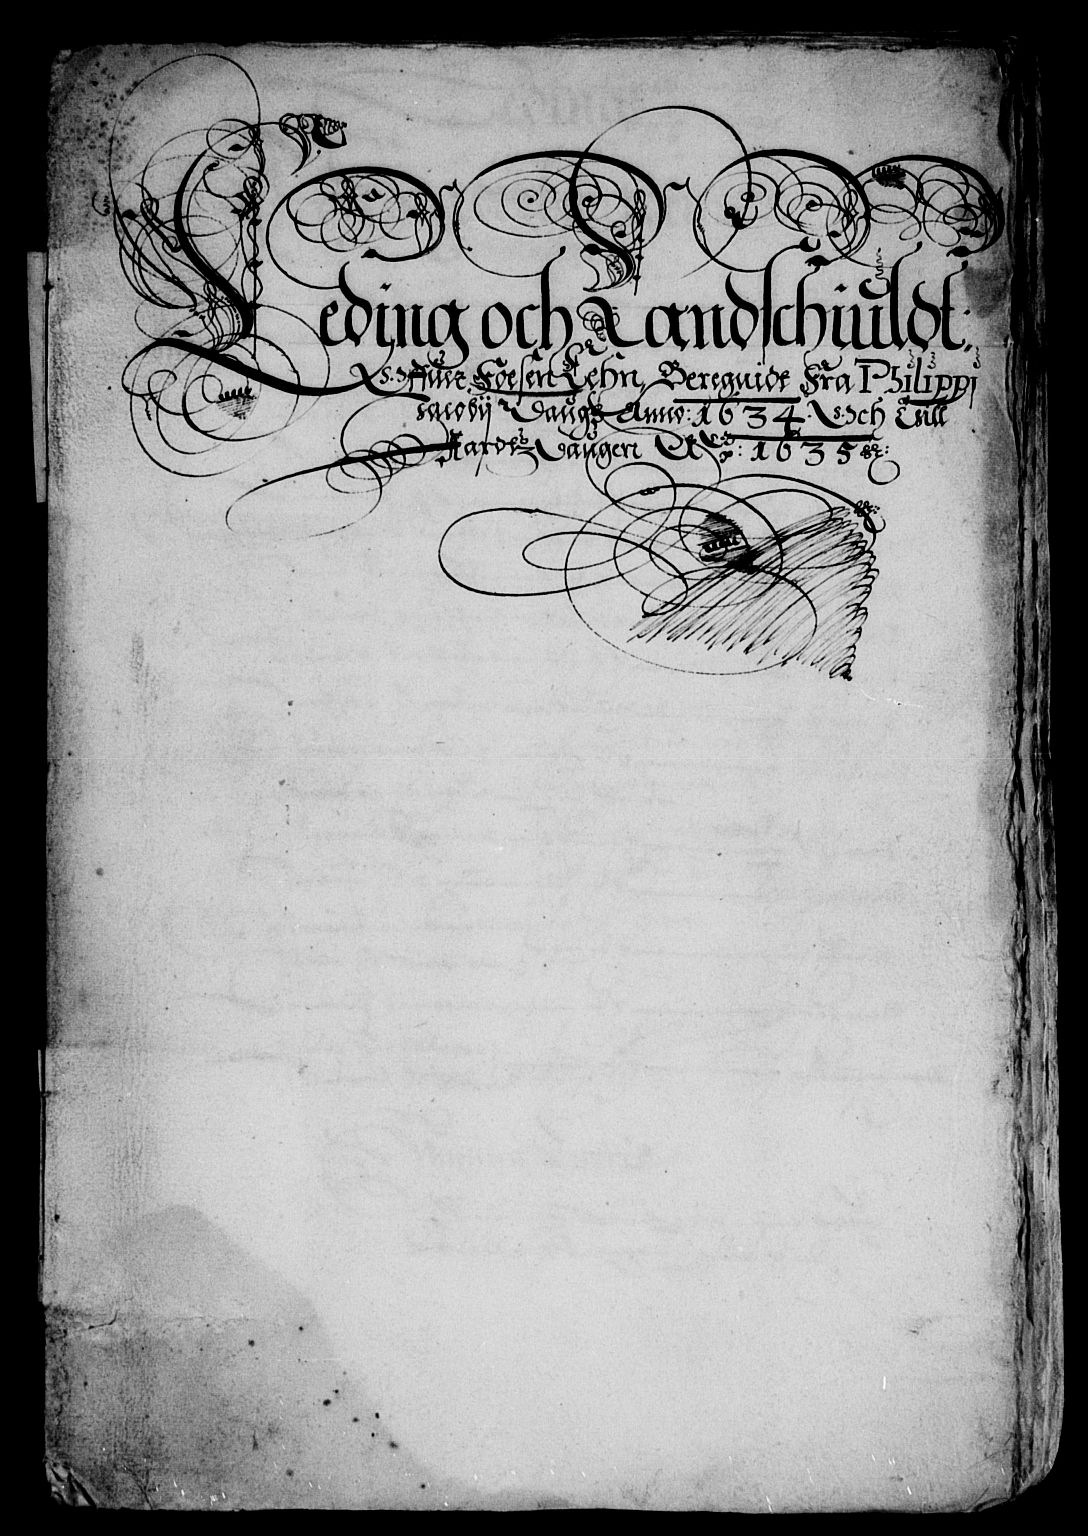 Leding och Landschiuldt:
Aff Foesen Lehn, Beregnidt Fra Philippi
Jacobij Daugh Anno: 1634. och Till
Aarsz Daugen 1635 &: